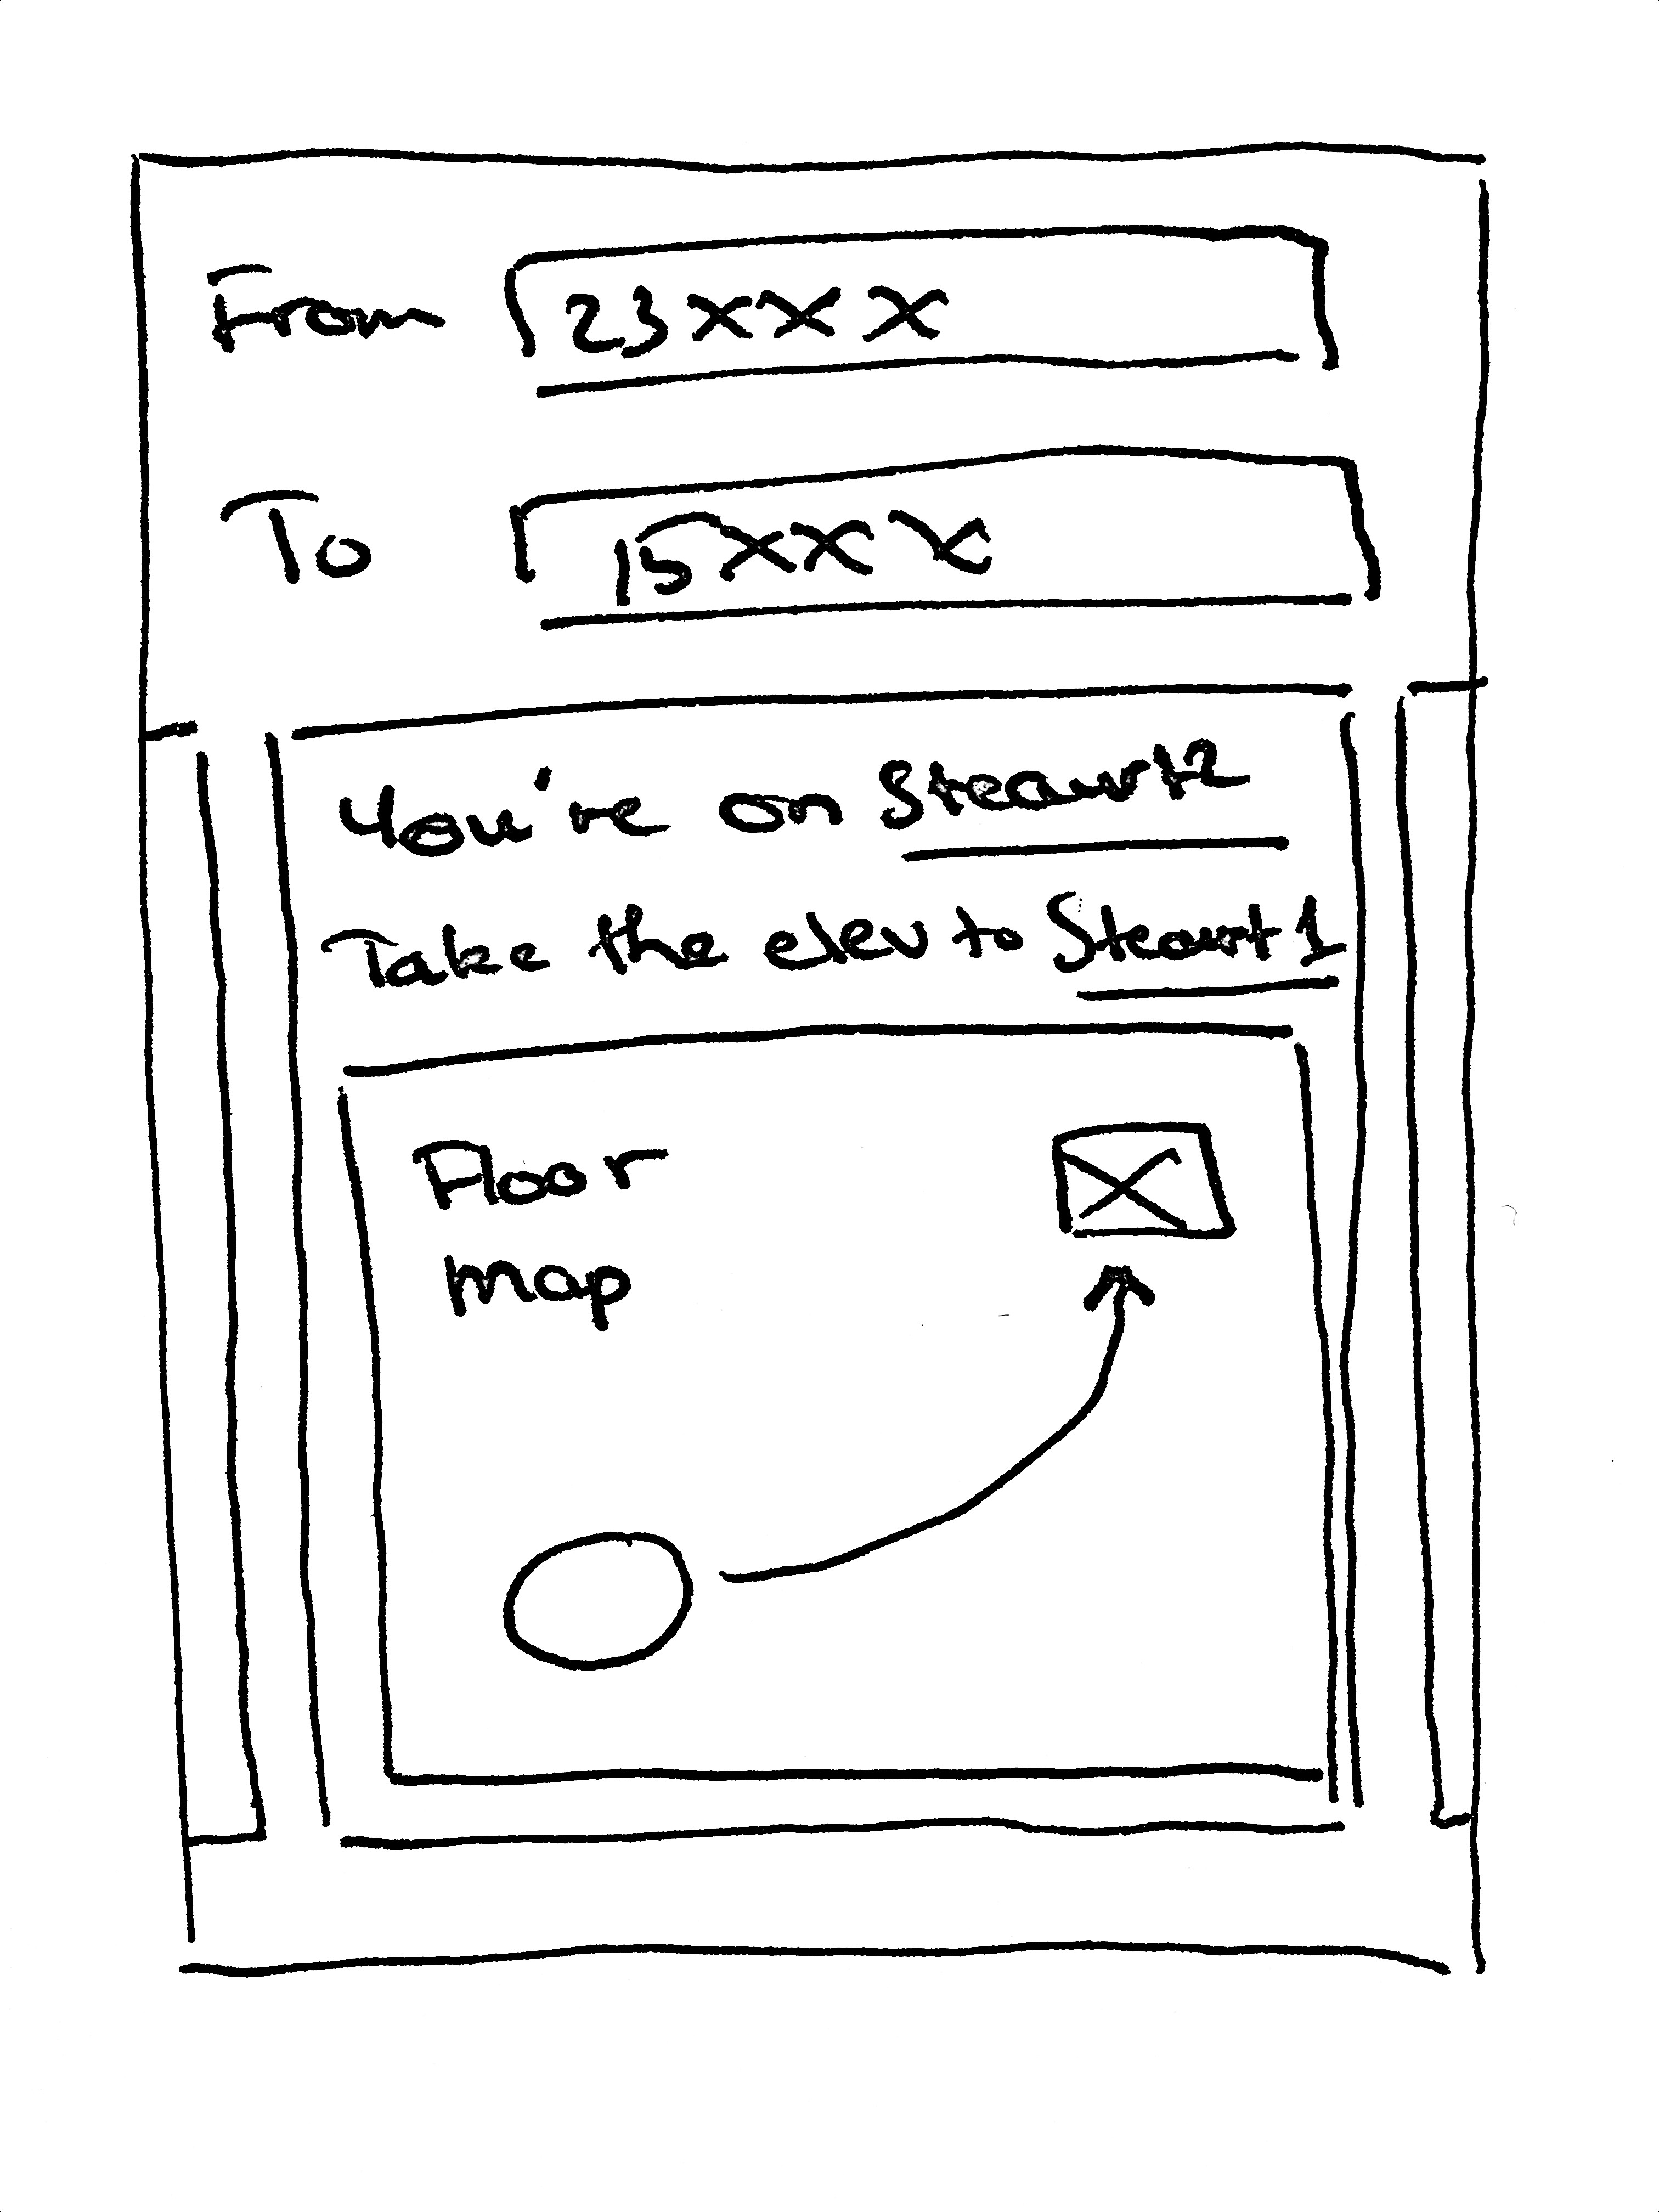 From 23XXX
To 15XXX
You're on Steart2
Take the elev to Steart1
Floor
map